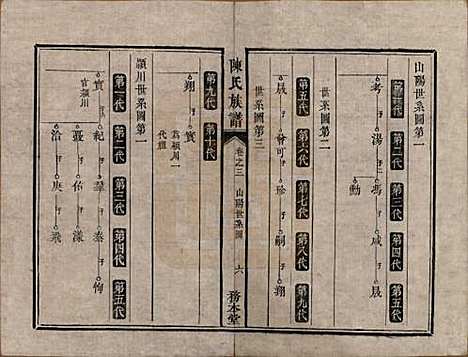 山陽世系圖第一
第一代 第二代 第三代 第四代 第五代
考 子 湯 子 馮 子 咸 子 晟
勳
世系圖第二
第五代 第六代 第七代 第八代 第九代
晟 子 會可 子 珍 子 嗣 子 翔
世系圖第三
陳氏族譜
卷之三 山陽世系圖 六
務本堂
第九代 第十代
翔 子 實
為潁川一代祖
潁川世系圖第一
第一代 第二代 第三代 第四代 第五代
實 子 紀 子 羣 子 泰 子 恂
官潁川
諶 佑 漾
洽 庚 飛